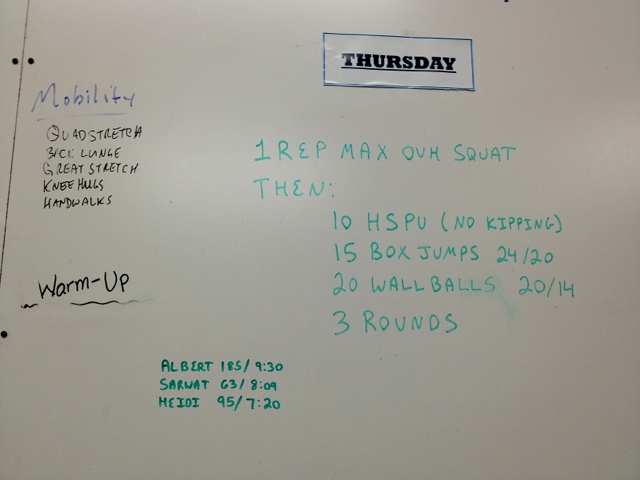 THURSDAY
Mobility
QUADSTRETCH
BICI LUNGE
GREAT STRETCH
KNEE HUGS
HANDWALKS
Warm-Up
1 REP MAX OVH SQUAT
THEN:
10 HSPU (NO KIPPING)
15 BOX JUMPS 24/20
20 WALLBALLS 20/14
3 ROUNDS
ALBERT 185/9:30
SARWAT 63/8:09
HEIDI 95/7:20